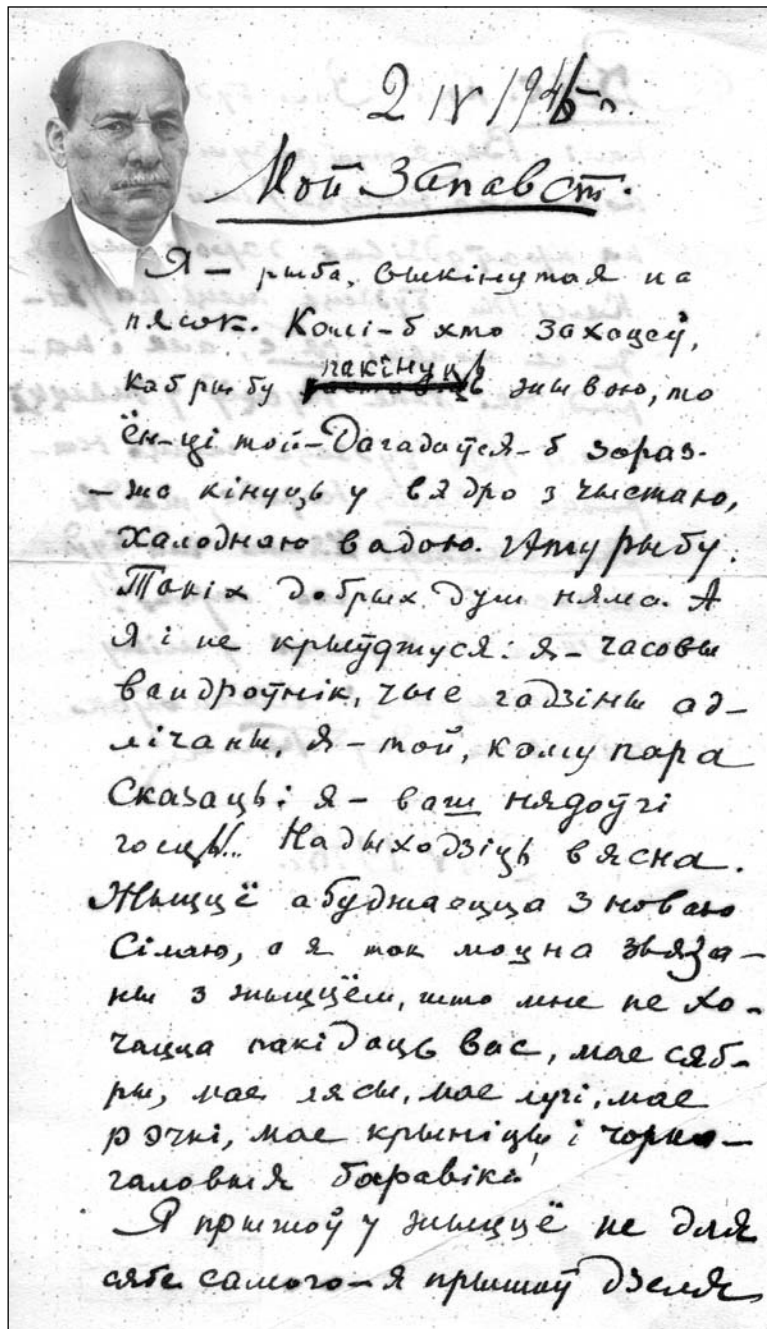 2 IV 1946 г.
Мой Запавет.
Я – рыба, выкінутая на
пясок. Калі-б хто захацеў,
каб рыбу пакінуць жывою, то
ён-ці той-дагадаўся-б зараз-
-жа кінуць у вядро з чыстаю,
халоднаю вадою. Этту рыбу.
Такіх добрых душ няма. А
я і не крыўджуся: я – часовы
вандроўнік, чые гадзіны ад-
лічаны, я – той, каму пара
сказаць: я – ваш нядоўгі
госць... Надыходзіць вясна.
Жыццё абуджаецца з новаю
сілаю, а я так моцна звяза-
ны з жыццём, што мне не хо-
чацца пакідаць вас, мае сяб-
ры, мае лясы, мае лугі, мае
рэчкі, мае крыніцы і чорна-
галовыя баравікі!
Я прышоў у жыццё не для
сябе самого – я прышоў дзеля